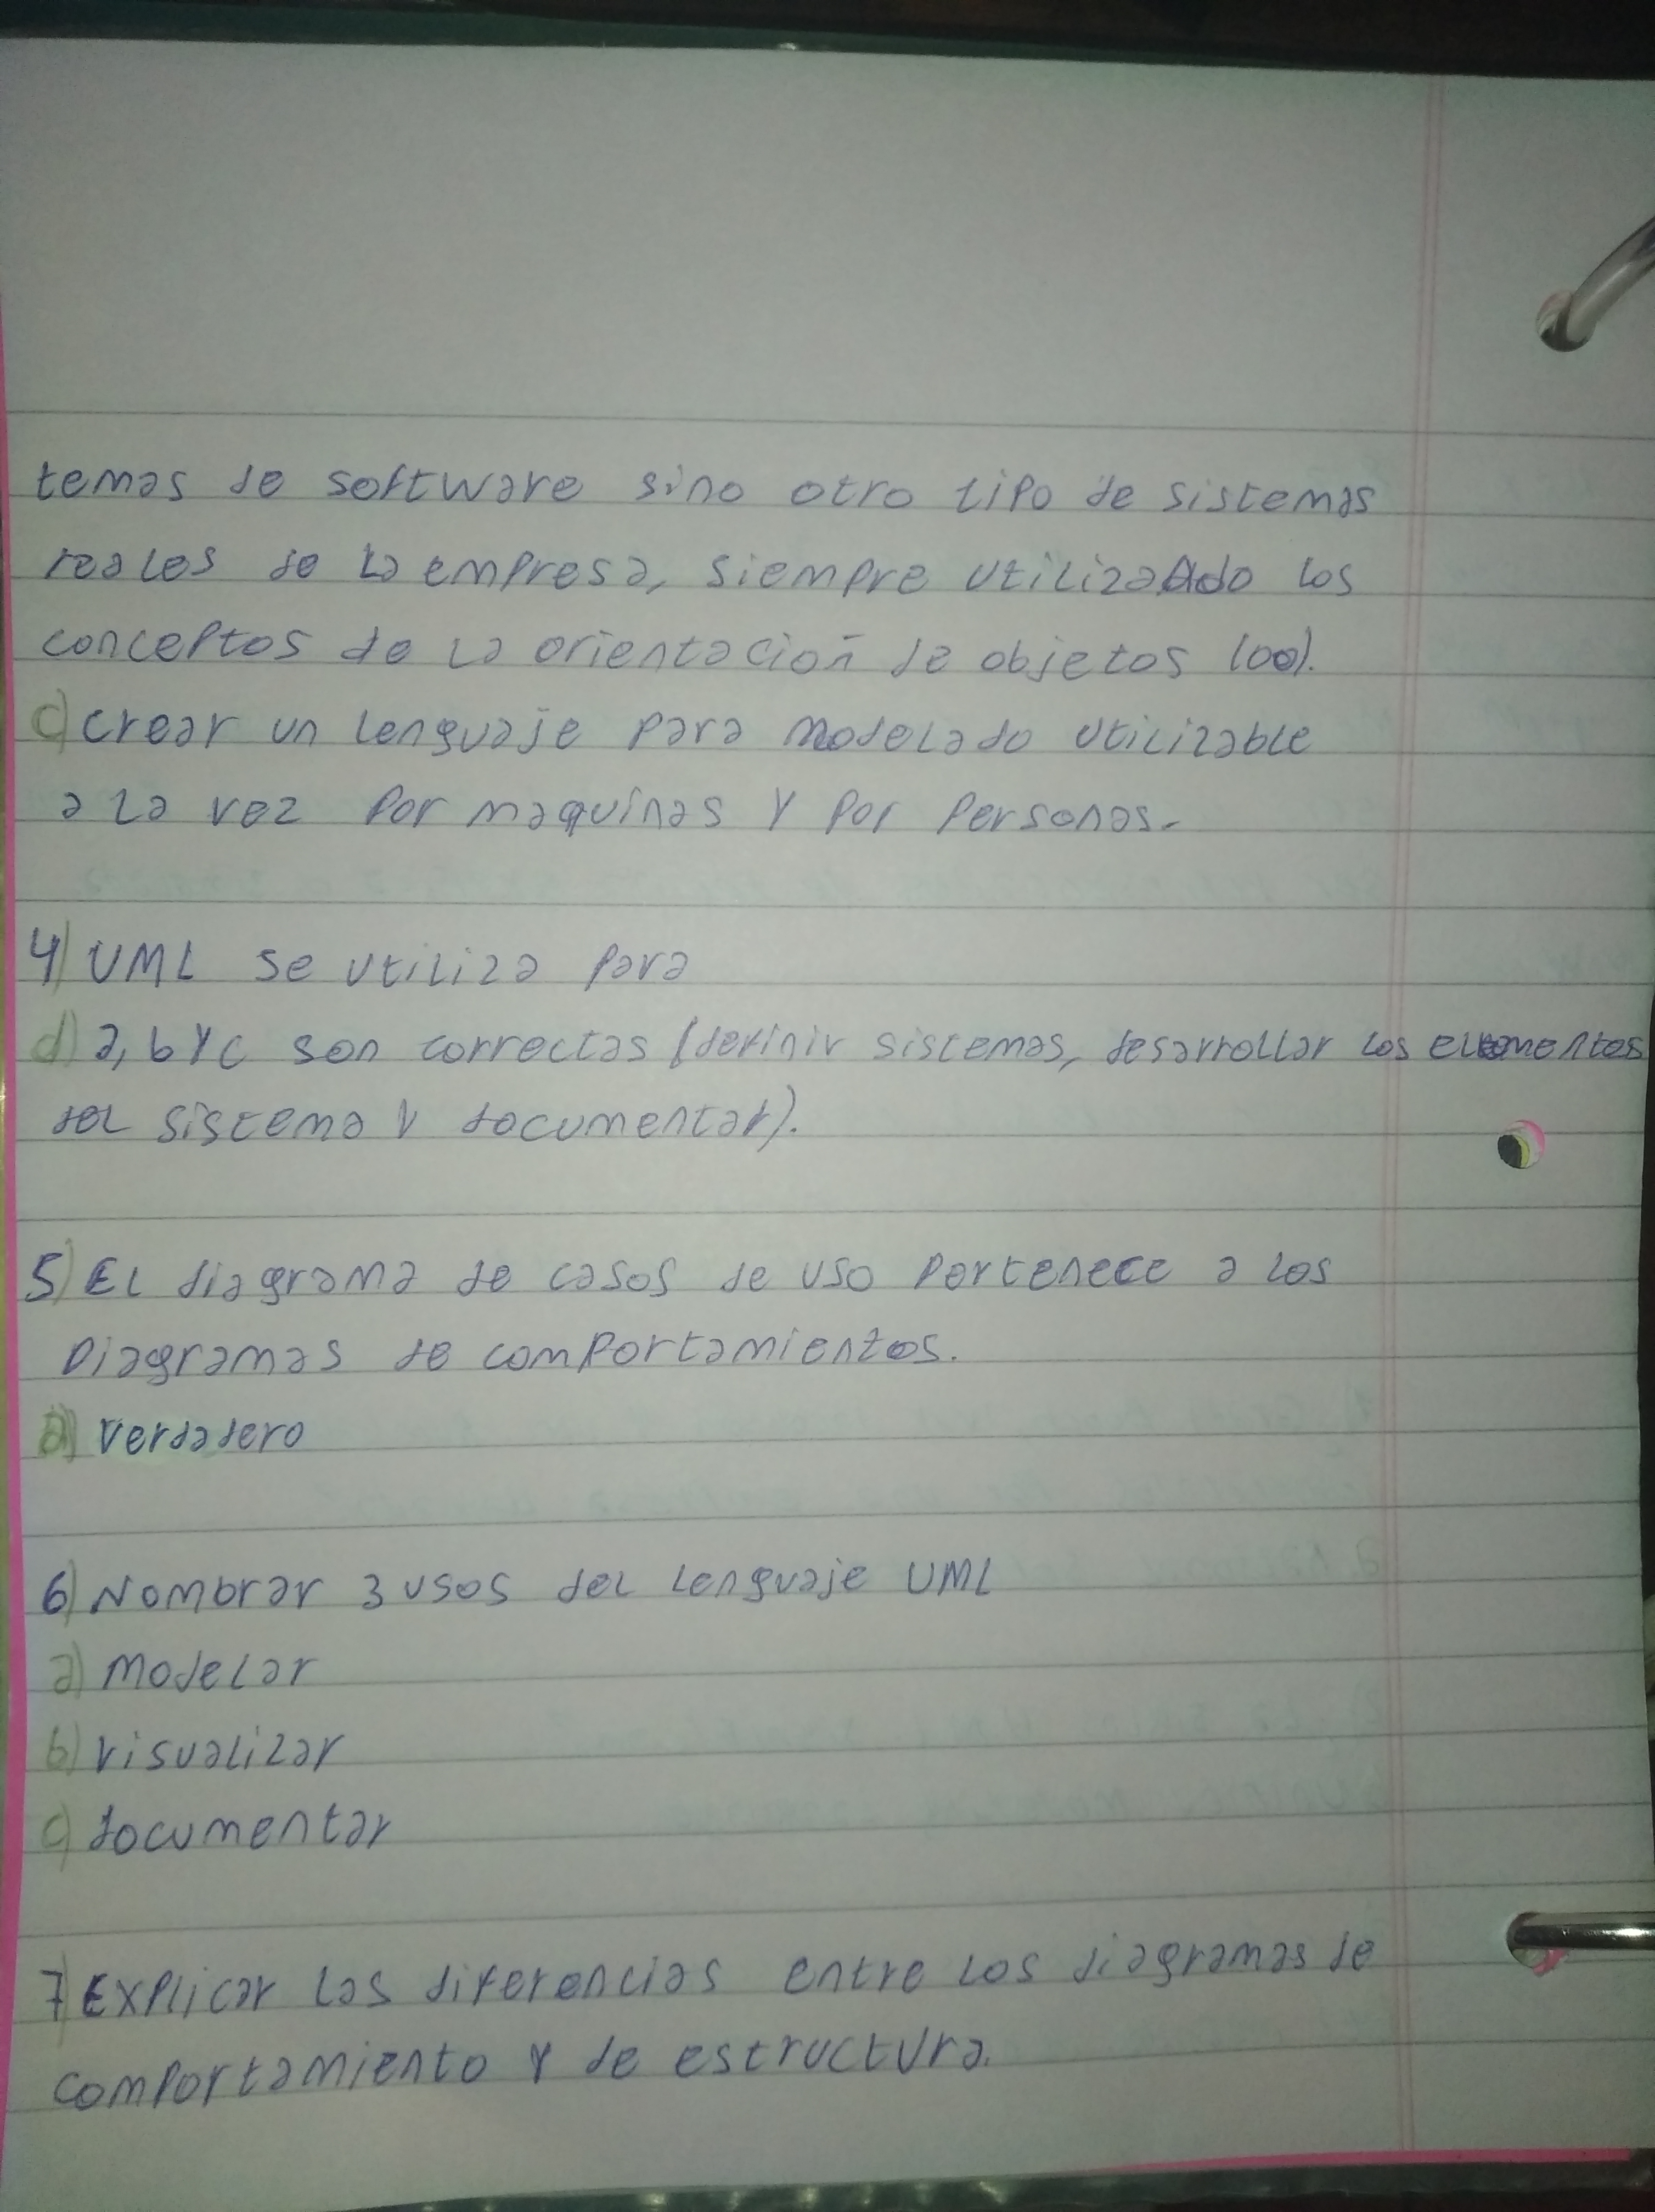 temas de software sino otro tipo de sistemas
reales de la empresa, siempre utilizando los
conceptos de la orientación de objetos (oo).
c) crear un lenguaje para modelado utilizable
a la vez por maquinas y por personas.
4) UML se utiliza para
d) a, b y c son correctas (definir sistemas, desarrollar los elementos
del sistema y documentar).
5) El diagrama de casos de uso pertenece a los
Diagramas de comportamientos.
a) Verdadero
6) Nombrar 3 usos del lenguaje UML
a) Modelar
b) visualizar
c) documentar
7) Explicar las diferencias entre los diagramas de
comportamiento y de estructura.